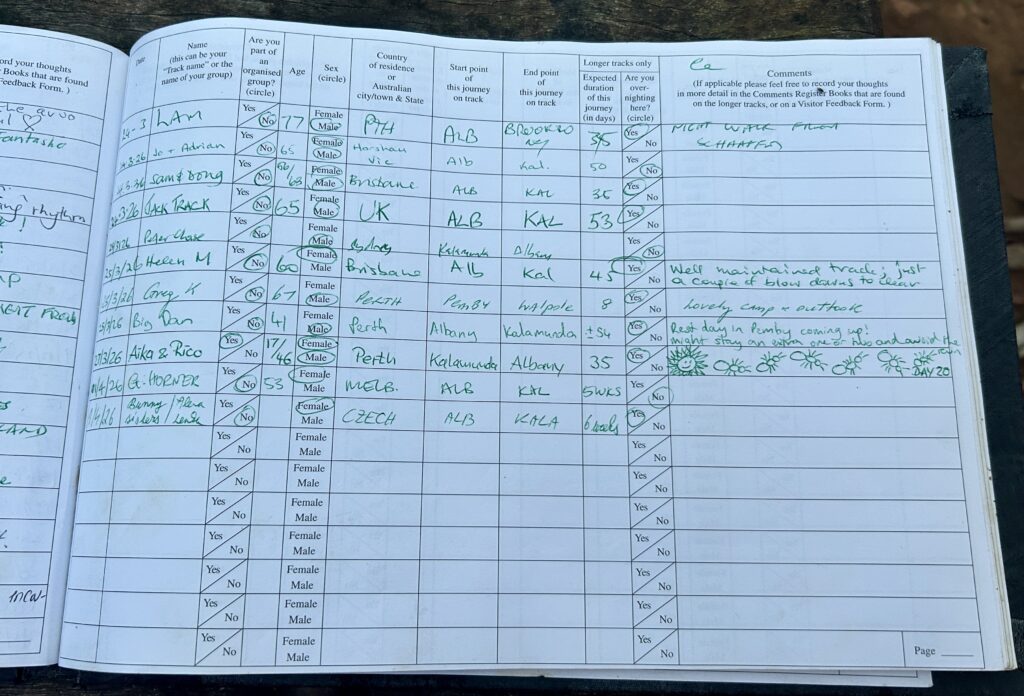 ord your thoughts
Books that are found
Feedback Form. )
Date
Name
(this can be your
"Track name" or the
name of your group)
Are you
part of
an
organised
group?
(circle)
Age
Sex
(circle)
Country
of residence
or
Australian
city/town & State
Start point
of this
journey
on track
End point
of this
journey
on track
Longer tracks only
Expected
duration
of this
journey
(in days)
Are you
over-
nighting
here?
(circle)
Comments
(If applicable please feel free to record your thoughts
in more detail in the Comments Register Books that are found
on the longer tracks, or on a Visitor Feedback Form. )
24-3 LAM Yes No 77 Female Male PTH ALB 35 Yes No MIGHT WALK FROM
Jo + Adrian Yes No 65 Female Male Horsham Vic Alb Kal. 50 Yes No
Sam & Doug Yes No Female Male Brisbane ALB KAL 35 Yes No
JACK TRACK Yes No 65 Female Male UK ALB KAL 53 Yes No
Peter Chase Yes No Male Sydney Kalamunda Albany Yes No
25/3/26 Helen M Yes No 60 Female Male Brisbane Alb Kal 45 Yes No Well maintained track, just
a couple of blow downs to clear
Greg K Yes No 67 Female Male PERTH PEMBY Walpole 8 Yes No Lovely camp + outlook
Big Dan Yes No 41 Female Male Perth Albany Kalamunda ±54 Yes No Rest day in Pemby coming up!
might stay an extra one or two and avoid the rain
27/3/26 Aika & Rico Yes No 17/46 Female Male Perth Kalamunda Albany 35 Yes No DAY 20
G. HORNER Yes No 53 Female Male MELB. ALB KAL 5WKS Yes No
Bunny Sisters / Yes No Female Male CZECH ALB KALA 6 weeks Yes No
Yes No Female Male Yes No
Yes No Female Male Yes No
Yes No Female Male Yes No
Yes No Female Male Yes No
Yes No Female Male Yes No
Yes No Female Male Yes No
Yes No Female Male Yes No
Page